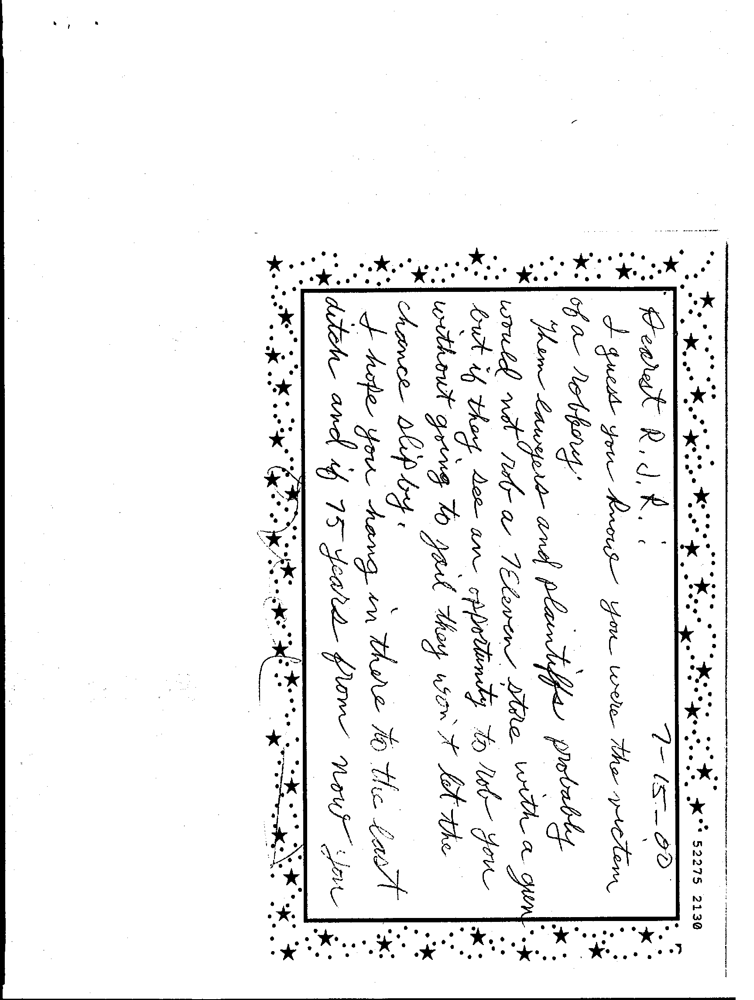 7-15-00
Dearest R.J.R.:
I guess you know you were the victem
of a robbery.
Them lawyers and plaintiffs probably
would not rob a 7Eleven store with a gun
but if they see an opportunity to rob you
without going to jail they won't let the
chance slip by.
I hope you hang in there to the last
ditch and if 75 years from now you
52275 2130